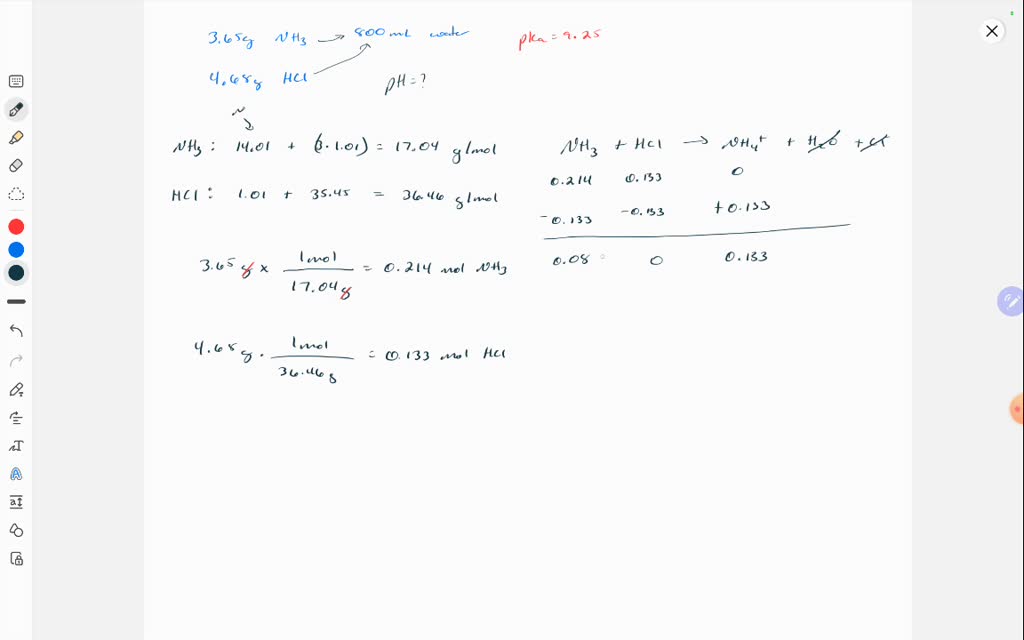 3.65g NH3 → 800 ml water pka = 9.25
4.68g HCl pH = ?
N
NH3 : 14.01 + (3 · 1.01) = 17.04 g/mol
HCl : 1.01 + 35.45 = 36.46 g/mol
3.65 g × 1mol / 17.04 g = 0.214 mol NH3
4.65 g · 1mol / 36.46 g = 0.133 mol HCl
NH3 + HCl → NH4+ + H2O + Cl-
0.214 0.133 0
-0.133 -0.133 +0.133
0.08 0 0.133